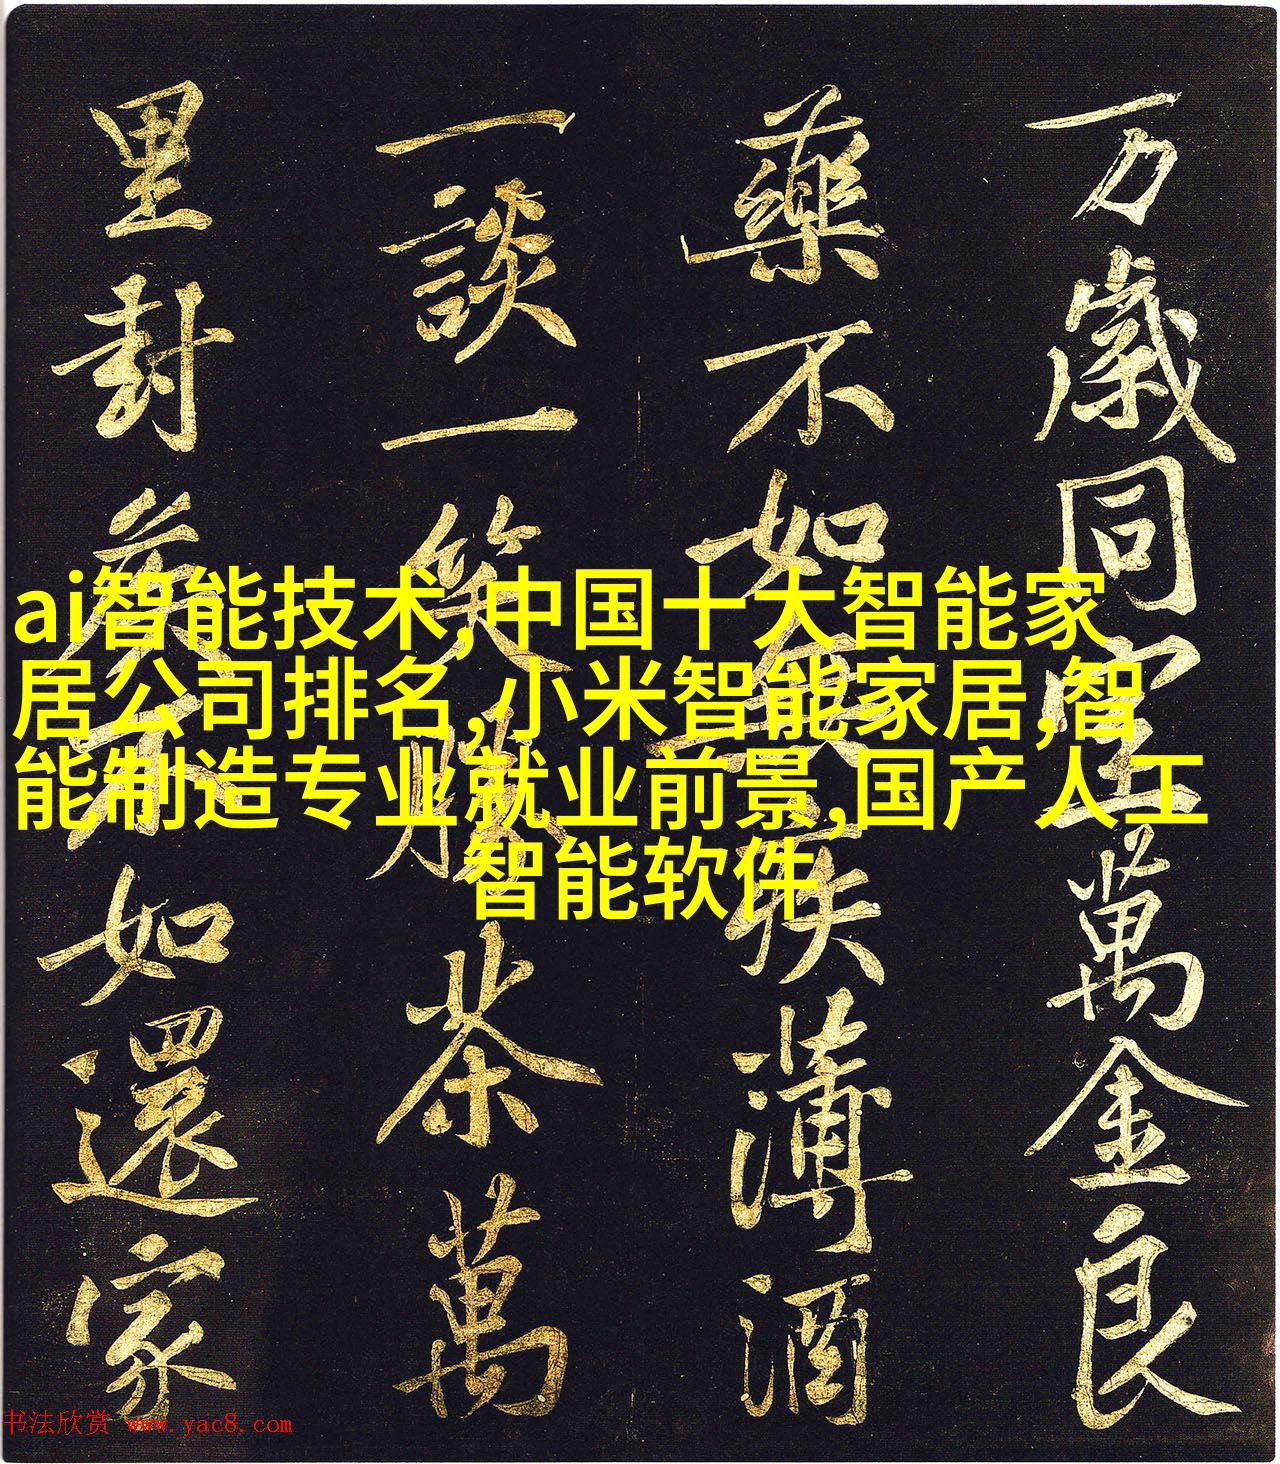 万歲同室萬金良
藥不如無疾薄酒
一談一笑勝茶萬
里封侯不如還家
ai智能技术,中国十大智能家
居公司排名,小米智能家居,智
能制造专业就业前景,国产人工
智能软件
书法欣赏 www.yac8.com